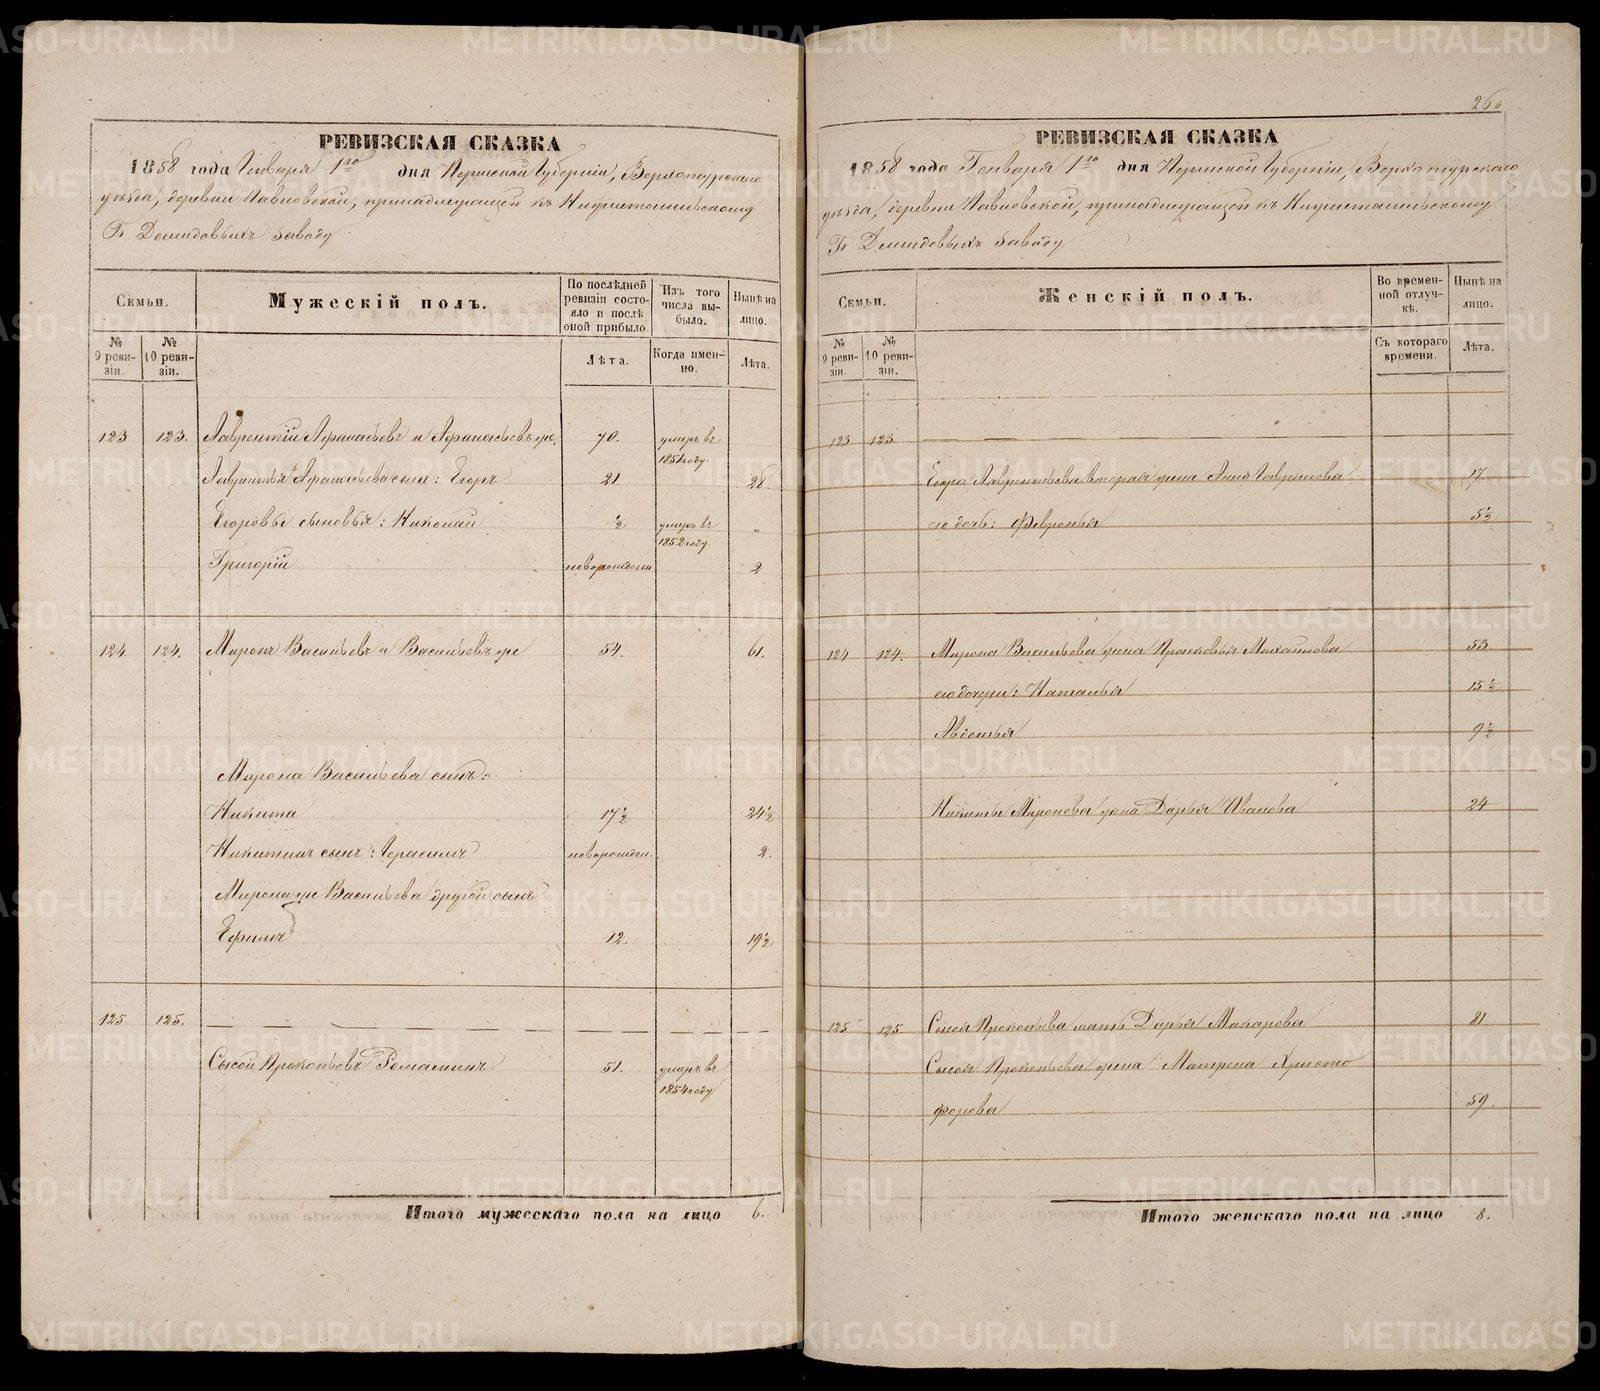 РЕВИЗСКАЯ СКАЗКА
1858 года Генваря 1го дня Пермской Губерніи, Верхотурскаго
уѣзда, деревни Павловской, принадлежащей къ Нижнетагильскому
Гг Демидовыхъ заводу
Семьи.
Мужескій полъ.
По послѣдней ревизіи состояло и послѣ оной прибыло.
Изъ того числа выбыло.
Нынѣ на лицо.
№ 9 ревизіи.
№ 10 ревизіи.
Лѣта.
Когда именно.
Лѣта.
123 123. Лаврентій Афанасьевъ и Афанасьевъ же. 70. умеръ въ 1851 году.
Лаврентья Афанасьева сынъ: Егоръ 21 28.
Егоровы сыновья: Николай ½ умеръ въ 1852 году. „
Григорій новорожден 2
124 124. Миронъ Васильевъ и Васильевъ же 54. 61.
Мирона Васильева сынъ:
Никита 17½ 24½
Никитинъ сынъ: Герасимъ новорожден. 2.
Мирона же Васильева другой сынъ
Ефимъ 12. 19½
125 125.
Сысой Прокопьевъ Ромашинъ 51. умеръ въ 1854 году
Итого мужескаго пола на лицо 6.
260
РЕВИЗСКАЯ СКАЗКА
1858 года Генваря 1го дня Пермской Губерніи, Верхотурскаго
уѣзда, деревни Павловской, принадлежащей къ Нижнетагильскому
Гг Демидовыхъ заводу
Семьи.
Женскій полъ.
Во временной отлучкѣ.
Нынѣ на лицо.
№ 9 ревизіи.
№ 10 ревизіи.
Съ котораго времени.
Лѣта.
123 123
Егора Лаврентьева вторая жена Анна Гаврилова 17
его дочь: Февронья 5½
124 124. Мирона Васильева жена Прасковья Михайлова 53
его дочери: Наталья 15½
Авдотья 9½
Никиты Миронова жена Дарья Иванова 24
125 125. Сысоя Прокопьева мать Дарья Макарова 81
Сысоя Прокопьева жена Матрена Христо
форова 59.
Итого женскаго пола на лицо 8.
METRIKI.GASO-URAL.RU